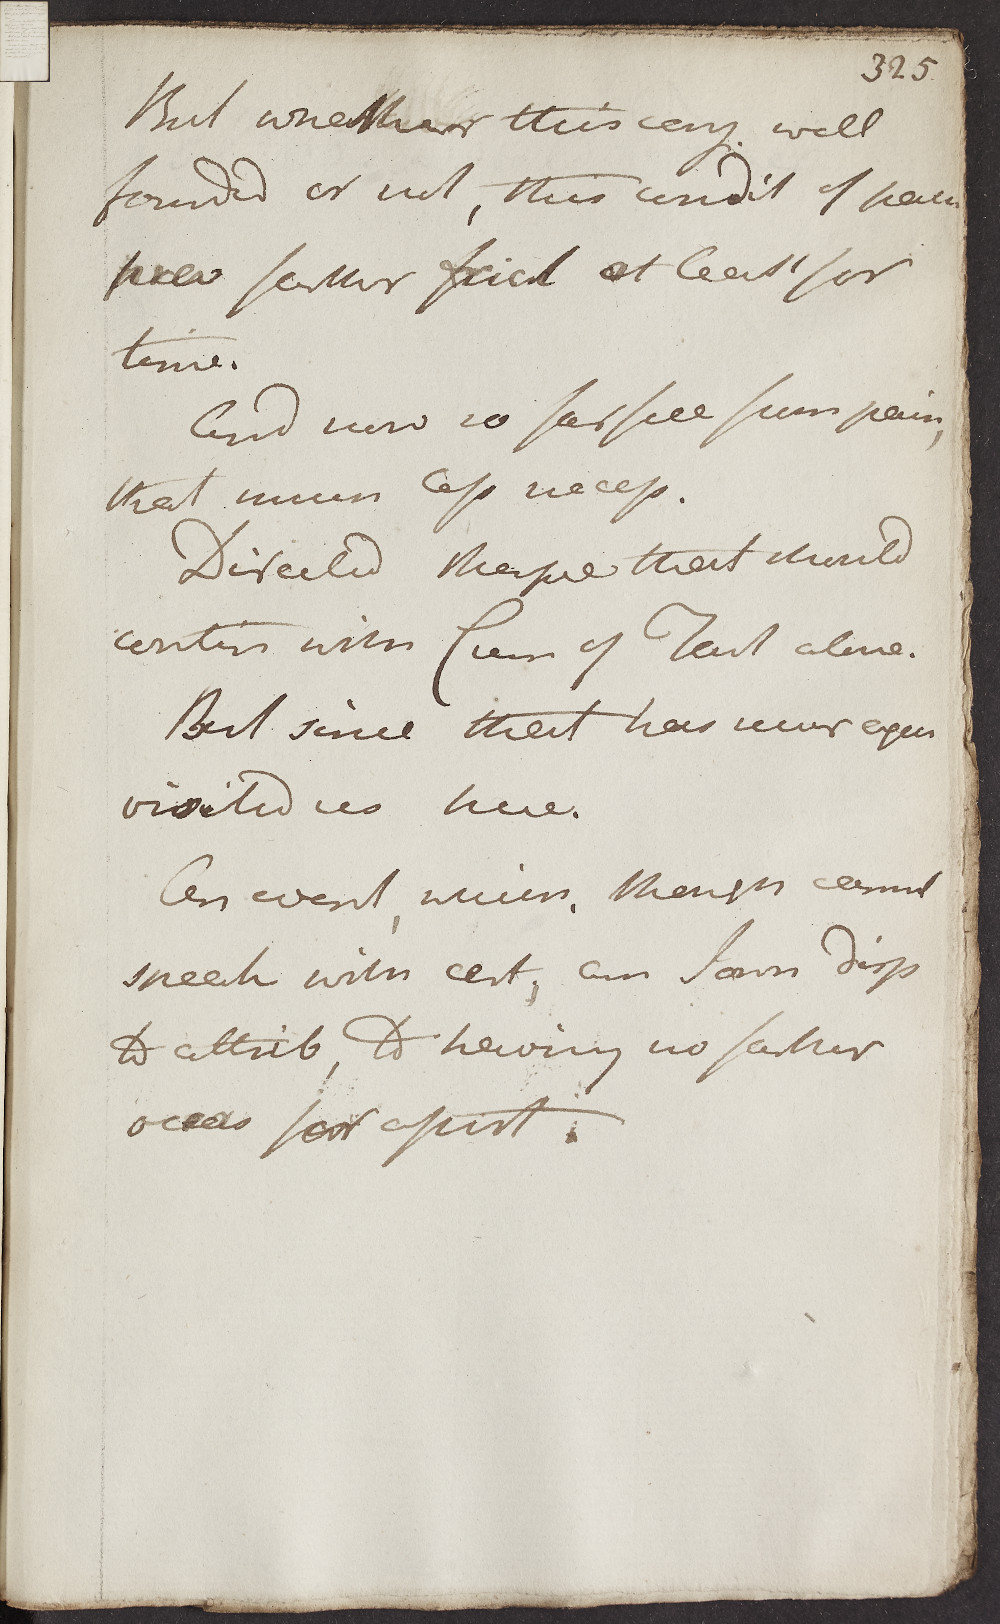 325
But whether this conj. well
founded or not, this condit of pain
prev farther trial at least for
time.
And now so far free from pain,
that much less necess.
Directed therefore that should
contin with Cream of Tart alone.
But since that has never again
visited us here.
An event, which, though cannot
speak with cert, am I own disp
to attrib, to having no farther
occas for assist.